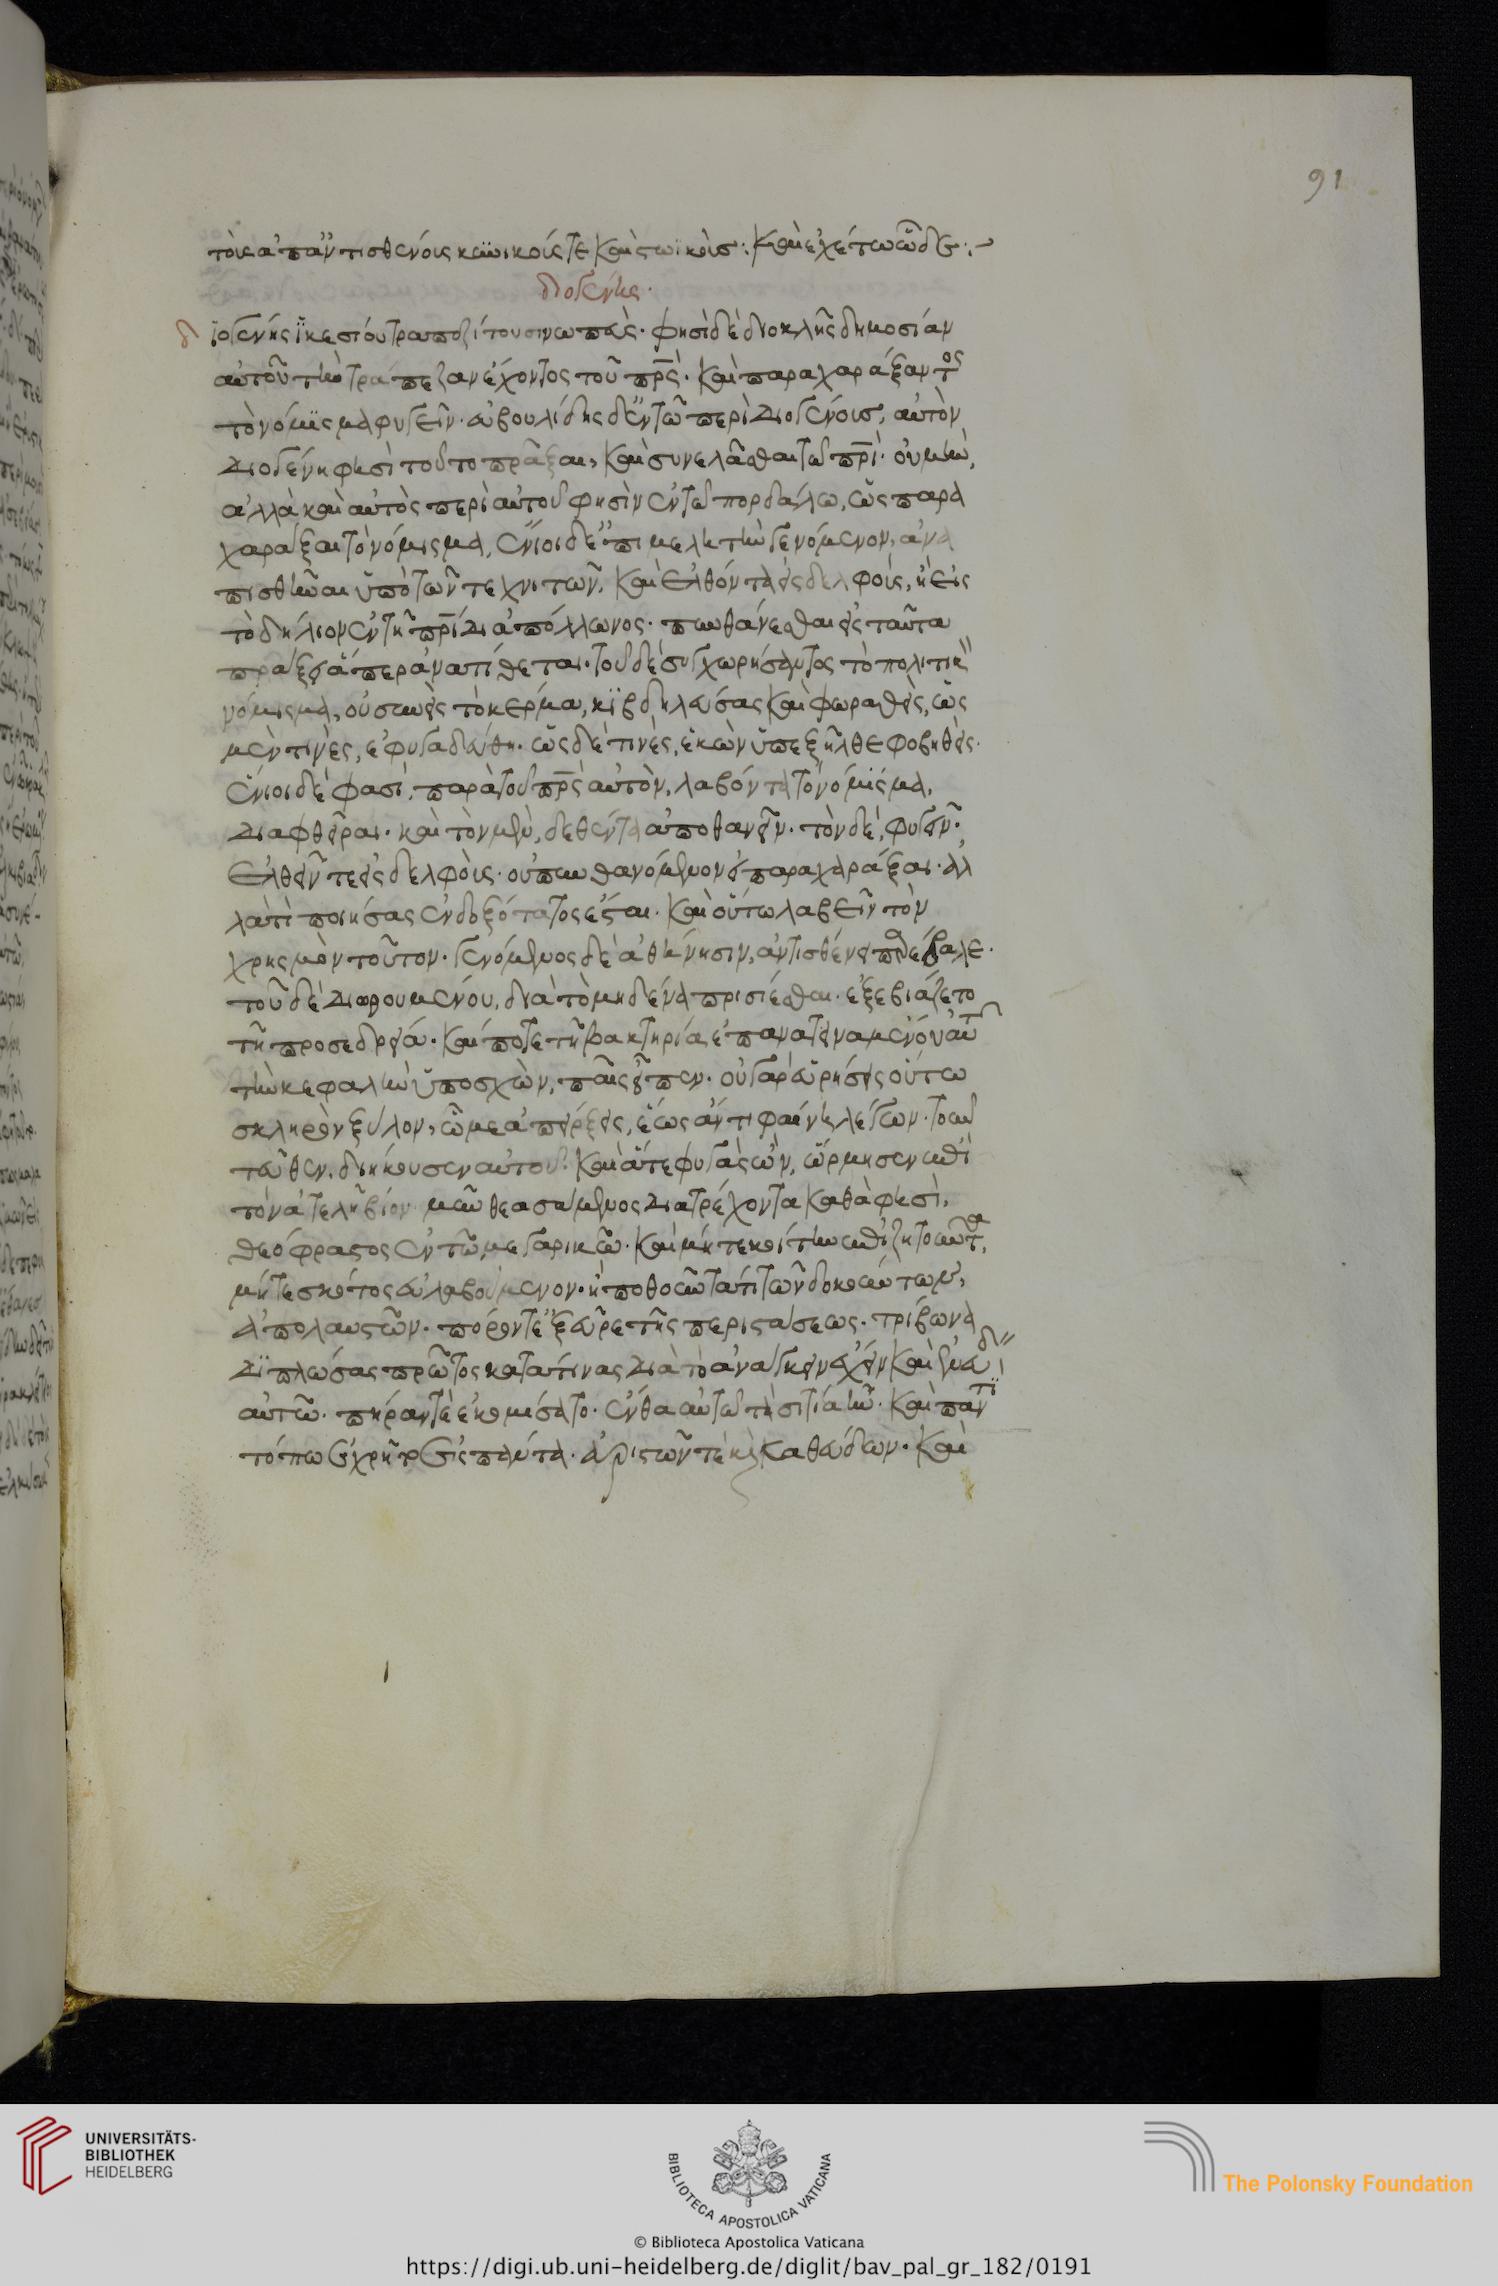 91
τοὺς ἀπ' ἀντισθένους κυνικούς τε καὶ στωϊκούς: καὶ ἐχέτω ὧδε:~
διογένης.
δ ϊογένης ϊκεσίου τραπεζίτου σινωπεύς. φησὶ δὲ διοκλῆς δημοσίαν
αὐτοῦ τὴν τράπεζαν ἔχοντος τοῦ πρς. καὶ παραχαράξαντος
τὸ νόμισμα φυγεῖν. εὐβουλίδης δ' ἐν τῶ περὶ διογένους, αὐτὸν
διογένη φησὶ τοῦτο πρᾶξαι, καὶ συνελᾶσθαι τῶ πρὶ. οὐ μὴν,
ἀλλὰ καὶ αὐτὸς περὶ αὐτοῦ φησὶν ἐν τῶ πορδάλω, ὡς παρα
χαράξαι τὸ νόμισμα, ἔνιοι δ' ἐπιμελητὴν γενόμενον, ἀνα
πεισθῆναι ὑπὸ τῶν τεχνιτῶν, καὶ ἐλθόντα εἰς δελφοὺς, ἢ εἰς
τὸ δήλιον ἐν τῆ πρίδι ἀπόλλωνος. πυνθάνεσθαι εἰ ταῦτα
πράξει ἅπερ ἀναπείθεται. τοῦ δὲ συγχωρήσαντος τὸ πολιτικὸν
νόμισμα, οὐ συνεὶς τὸ κέρμα, κιβδηλεύσας καὶ φωραθεὶς, ὡς
μὲν τινὲς, ἐφυγαδεύθη. ὡς δέ τινὲς, ἑκὼν ὑπεξῆλθε φοβηθείς.
ἔνιοι δέ φασι, παρὰ τοῦ πρς αὐτὸν, λαβόντα τὸ νόμισμα,
διαφθεῖραι. καὶ τὸν μὲν, δεθέντα ἀποθανεῖν. τὸν δὲ, φυγεῖν.
ἐλθεῖν τε εἰς δελφοὺς. οὐ πυνθανόμενον εἰ παραχαράξαι. ἀλ
λὰ τί ποιήσας ἐνδοξότατος ἔσται. καὶ οὕτω λαβεῖν τὸν
χρησμὸν τοῦτον. γενόμενος δὲ ἀθήνησιν, ἀντισθένει παρέβαλε.
τοῦ δὲ διωθουμένου, διὰ τὸ μηδένα προσίεσθαι. ἐξεβιάζετο
τῆ προσεδρεία. καί ποτε τὴν βακτηρία ἐπανατειναμένου αὐτῶ
τὴν κεφαλὴν ὑποσχὼν, παῖε εἶπεν. οὐ γὰρ εὑρήσεις οὕτω
σκληρὸν ξύλον, ὧ με ἀπείρξεις, ἕως ἄν τι φαίνη λέγων. τοὐν
τεῦθεν, διήκουσεν αὐτοῦ. καὶ ἅτε φυγὰς ὢν, ὥρμησεν ἐπὶ
τὸν εὐτελῆ βίον. μῦν θεασάμενος διατρέχοντα καθὰ φησὶ,
θεόφραστος ἐν τῶ μεγαρικῶ. καὶ μήτε κοίτην ἐπιζητοῦντα,
μήτε σκότος εὐλαβούμενον. ἢ ποθοῦντά τι τῶν δοκούντων,
ἀπολαυστῶν. πόρον τε ἐξεῦρε τῆς περιστάσεως. τρίβωνα
διπλώσας πρῶτος κατά τινας διὰ τὸ ἀνάγκην ἔχειν καὶ ἐνεύδειν
αὐτῶ. πήραν τε ἐκομίσατο. ἔνθα αὐτῶ τὰ σιτία ἦν. καὶ παντὶ
τόπω ἐχρῆτο εἰς πάντα. ἀριστῶν τε καὶ καθεύδων. καὶ
UNIVERSITÄTS-
BIBLIOTHEK
HEIDELBERG
BIBLIOTECA APOSTOLICA VATICANA
The Polonsky Foundation
© Biblioteca Apostolica Vaticana
https://digi.ub.uni-heidelberg.de/diglit/bav_pal_gr_182/0191